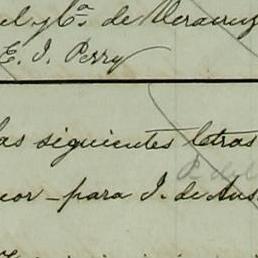 el y Ca. de Veracruz
E. I. Perry
las siguientes letras
nor - para I. de Aus